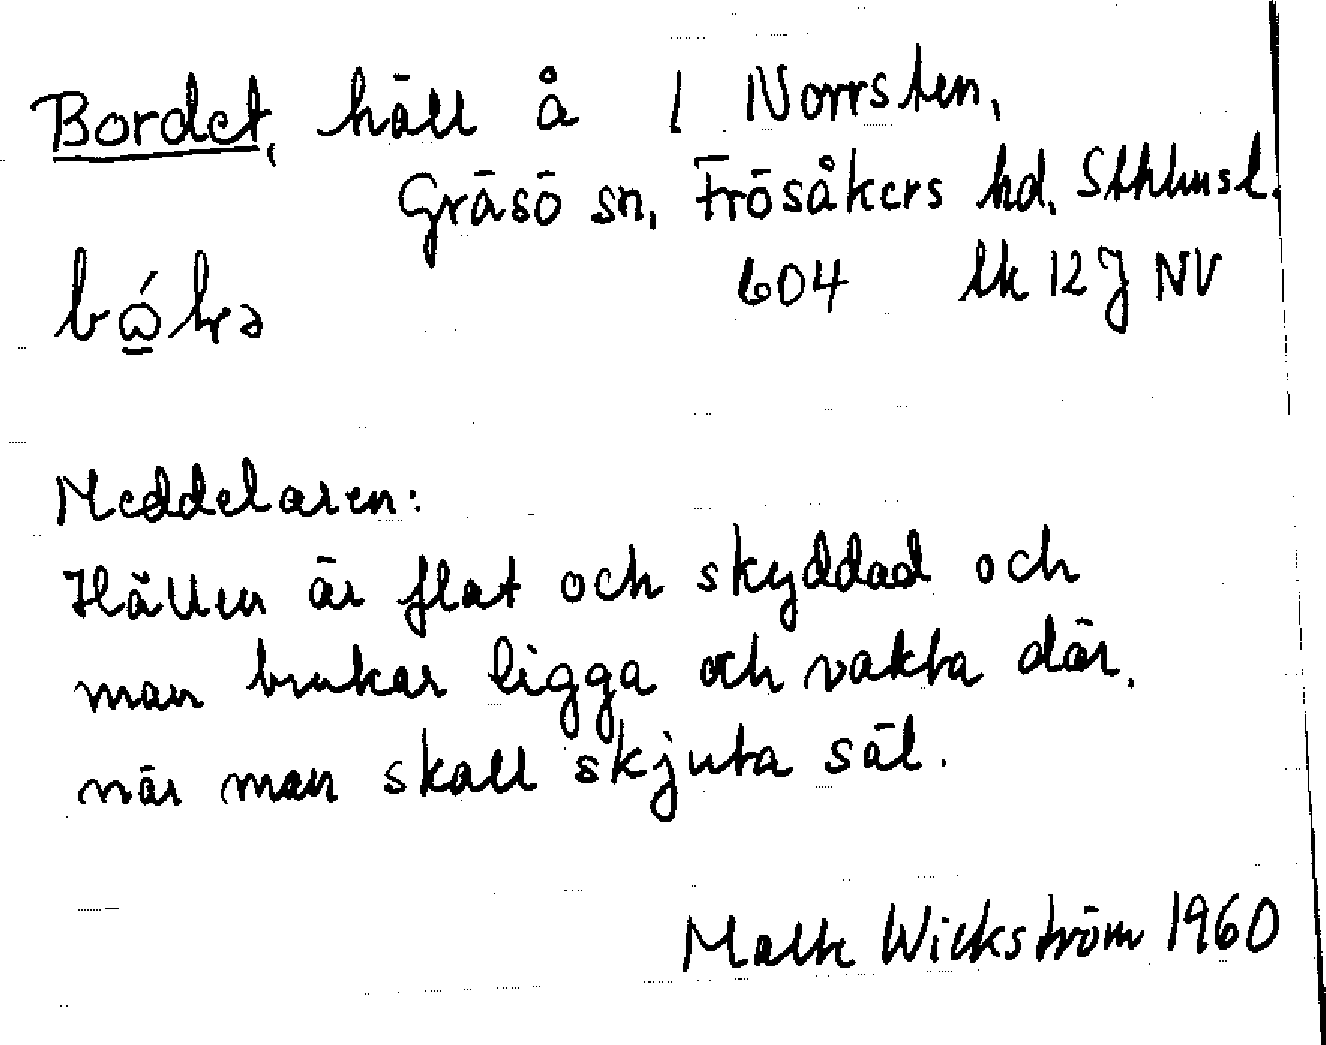 Bordet, häll å 1 Norrsten,
Gräsö sn, Frösåkers hd, Sthlmsl.
604 tk 12J NV
Meddelaren:
Hällen är flat och skyddad och
man brukar ligga och vakta där,
när man skall skjuta säl.
Wickström 1960